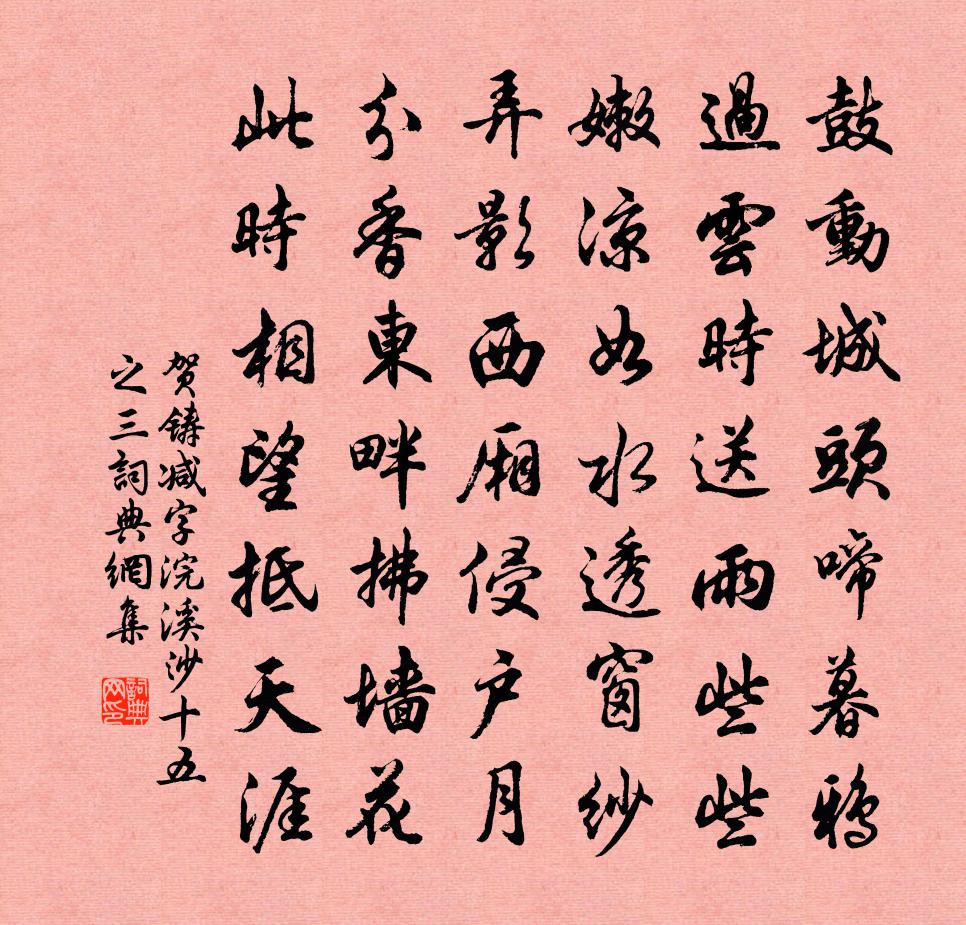 鼓動城頭啼暮鴉
過雲時送雨些些
嫩涼如水透窗紗
弄影西厢侵户月
分香東畔拂墙花
此時相望抵天涯
贺鑄减字浣溪沙十五
之三詞典網集
詞典网印